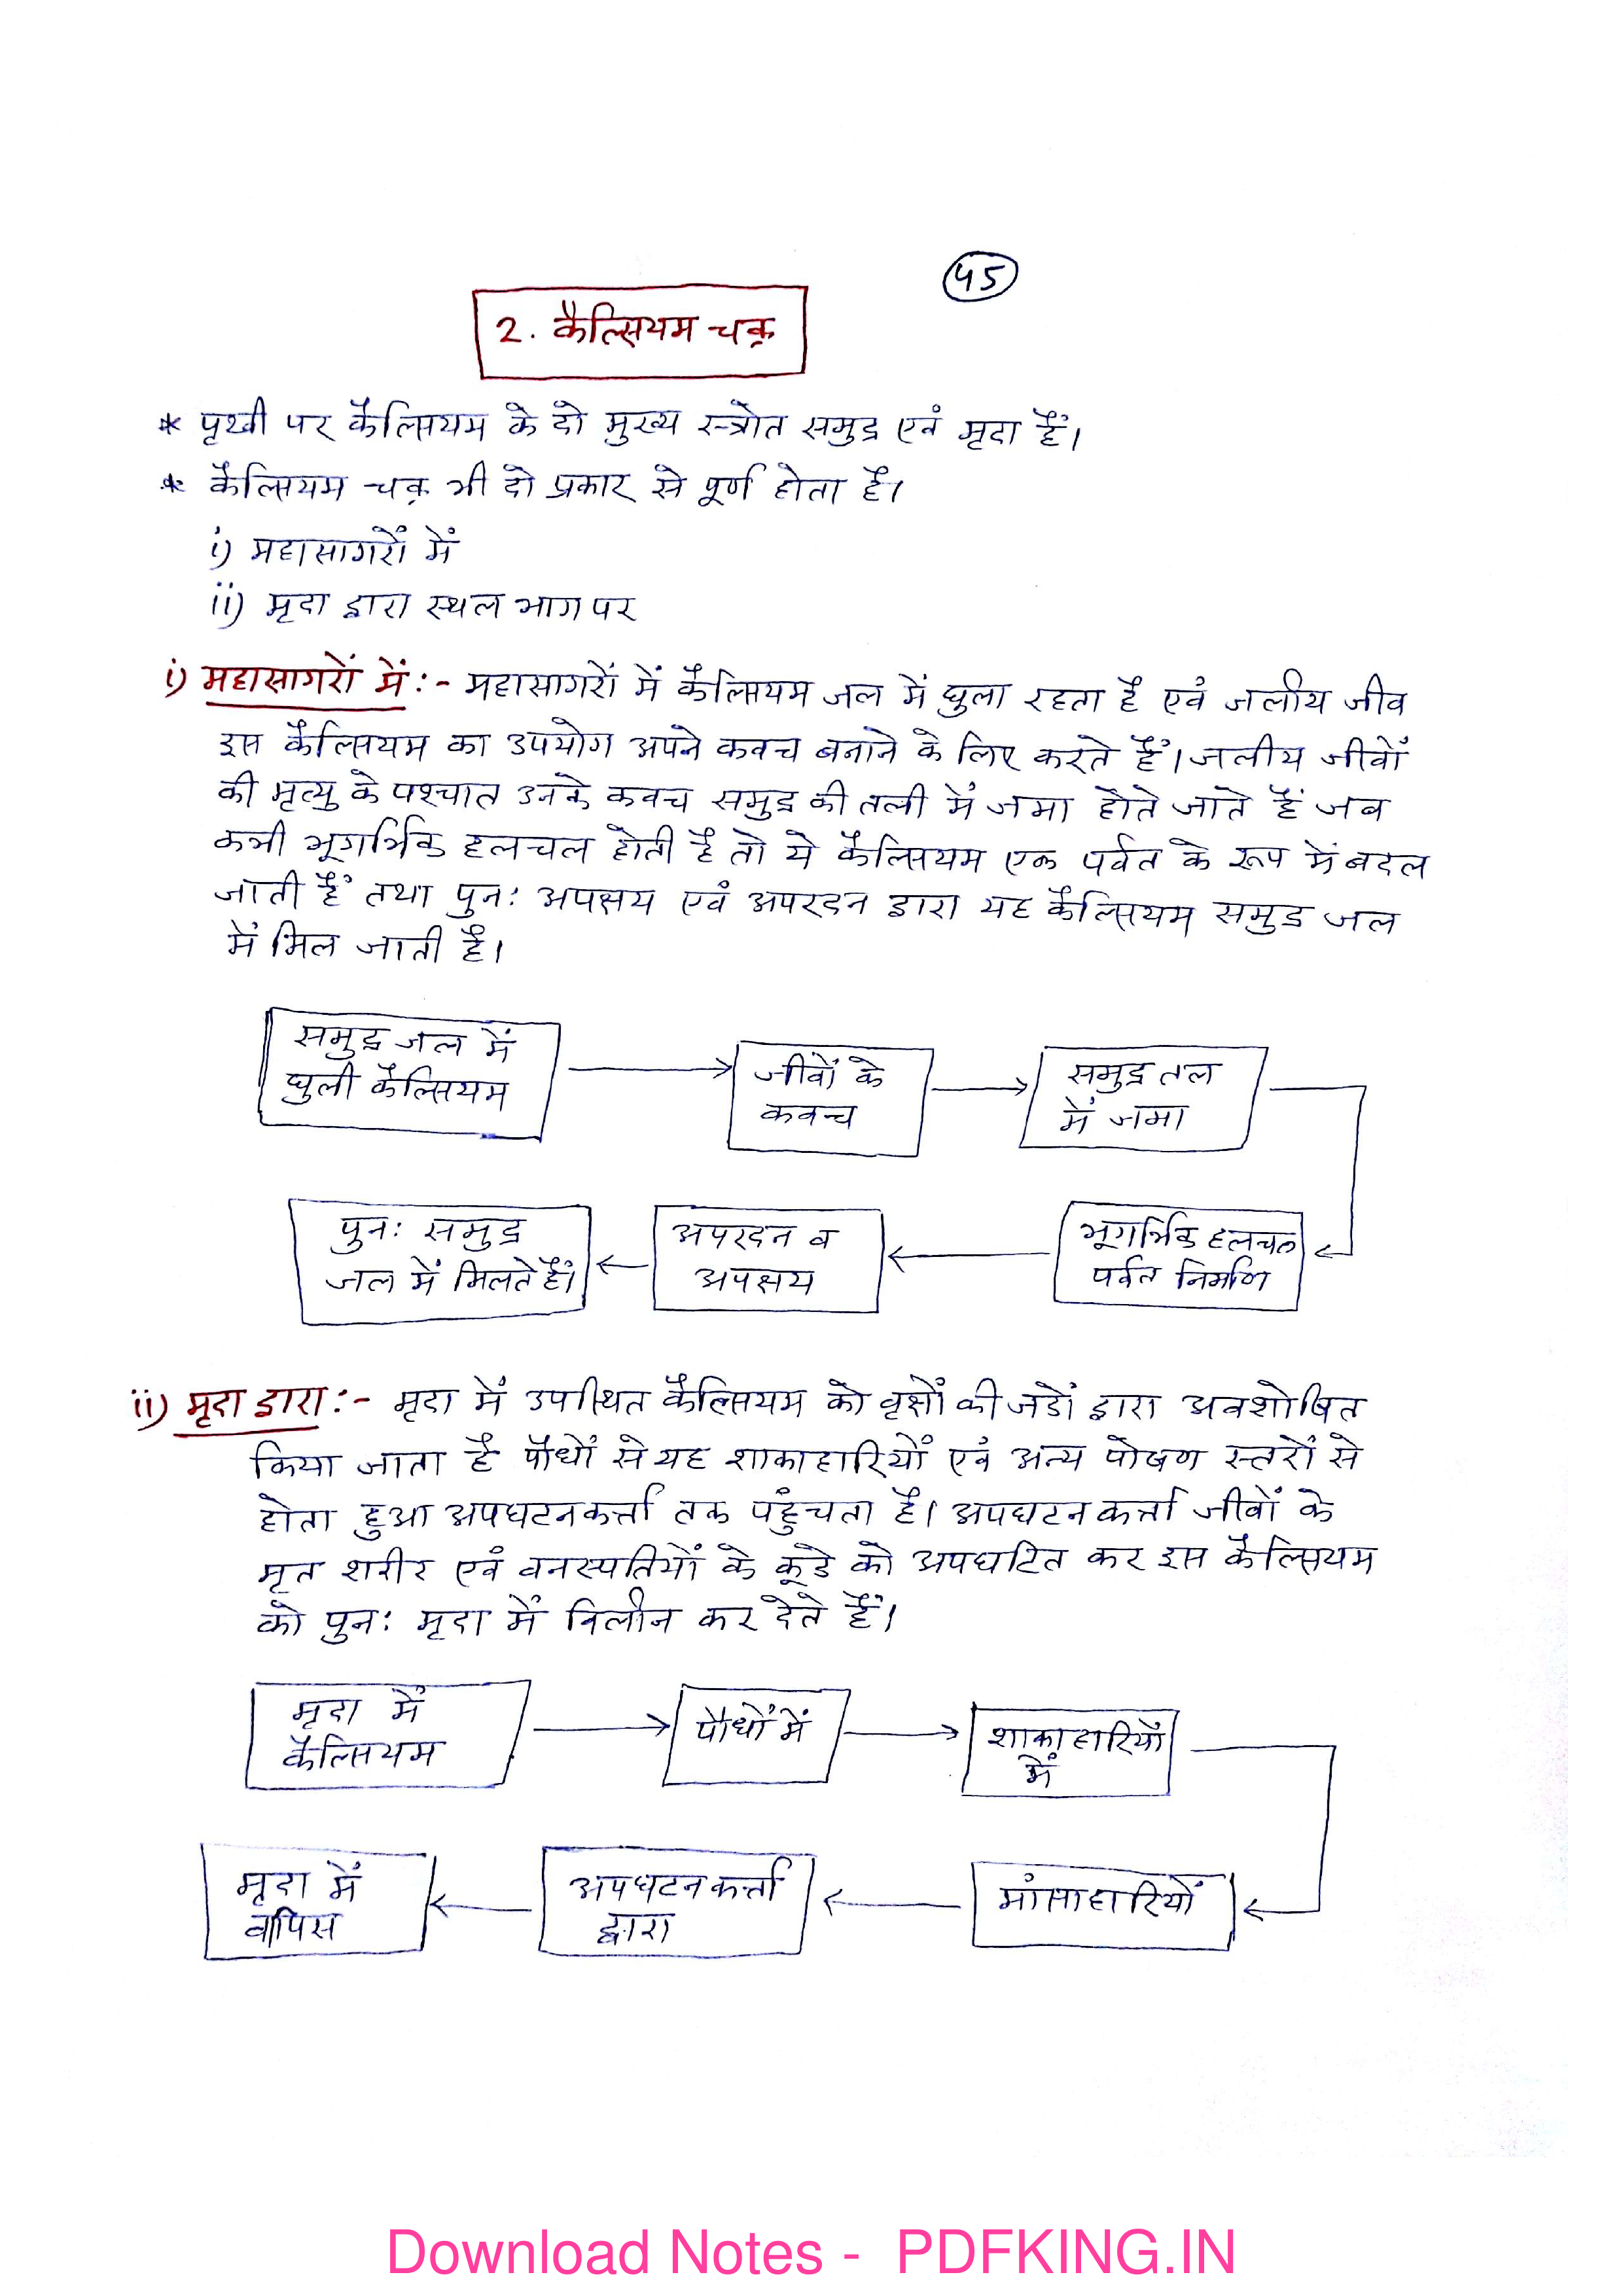 45
2. कैल्सियम चक्र
* पृथ्वी पर कैल्सियम के दो मुख्य स्त्रोत समुद्र एवं मृदा हैं।
* कैल्सियम चक्र भी दो प्रकार से पूर्ण होता है।
i) महासागरों में
ii) मृदा द्वारा स्थल भाग पर
i) महासागरों में :- महासागरों में कैल्सियम जल में घुला रहता है एवं जलीय जीव
इस कैल्सियम का उपयोग अपने कवच बनाने के लिए करते हैं। जलीय जीवों
की मृत्यु के पश्चात उनके कवच समुद्र की तली में जमा होते जाते हैं जब
कभी भूगर्भिक हलचल होती है तो ये कैल्सियम एक पर्वत के रूप में बदल
जाती हैं तथा पुनः अपक्षय एवं अपरदन द्वारा यह कैल्सियम समुद्र जल
में मिल जाती है।
समुद्र जल में
घुली कैल्सियम
जीवों के
कवच
समुद्र तल
में जमा
पुनः समुद्र
जल में मिलते हैं।
अपरदन व
अपक्षय
भूगर्भिक हलचल
पर्वत निर्माण
ii) मृदा द्वारा :- मृदा में उपस्थित कैल्सियम को वृक्षों की जडों द्वारा अवशोषित
किया जाता है पौधों से यह शाकाहारियों एवं अन्य पोषण स्तरों से
होता हुआ अपघटनकर्त्ता तक पहुंचता है। अपघटनकर्त्ता जीवों के
मृत शरीर एवं वनस्पतियों के कूडे को अपघटित कर इस कैल्सियम
को पुनः मृदा में विलीन कर देते हैं।
मृदा में
कैल्सियम
पौधों में
शाकाहारियों
में
मृदा में
वापिस
अपघटनकर्त्ता
द्वारा
मांसाहारियों
Download Notes - PDFKING.IN